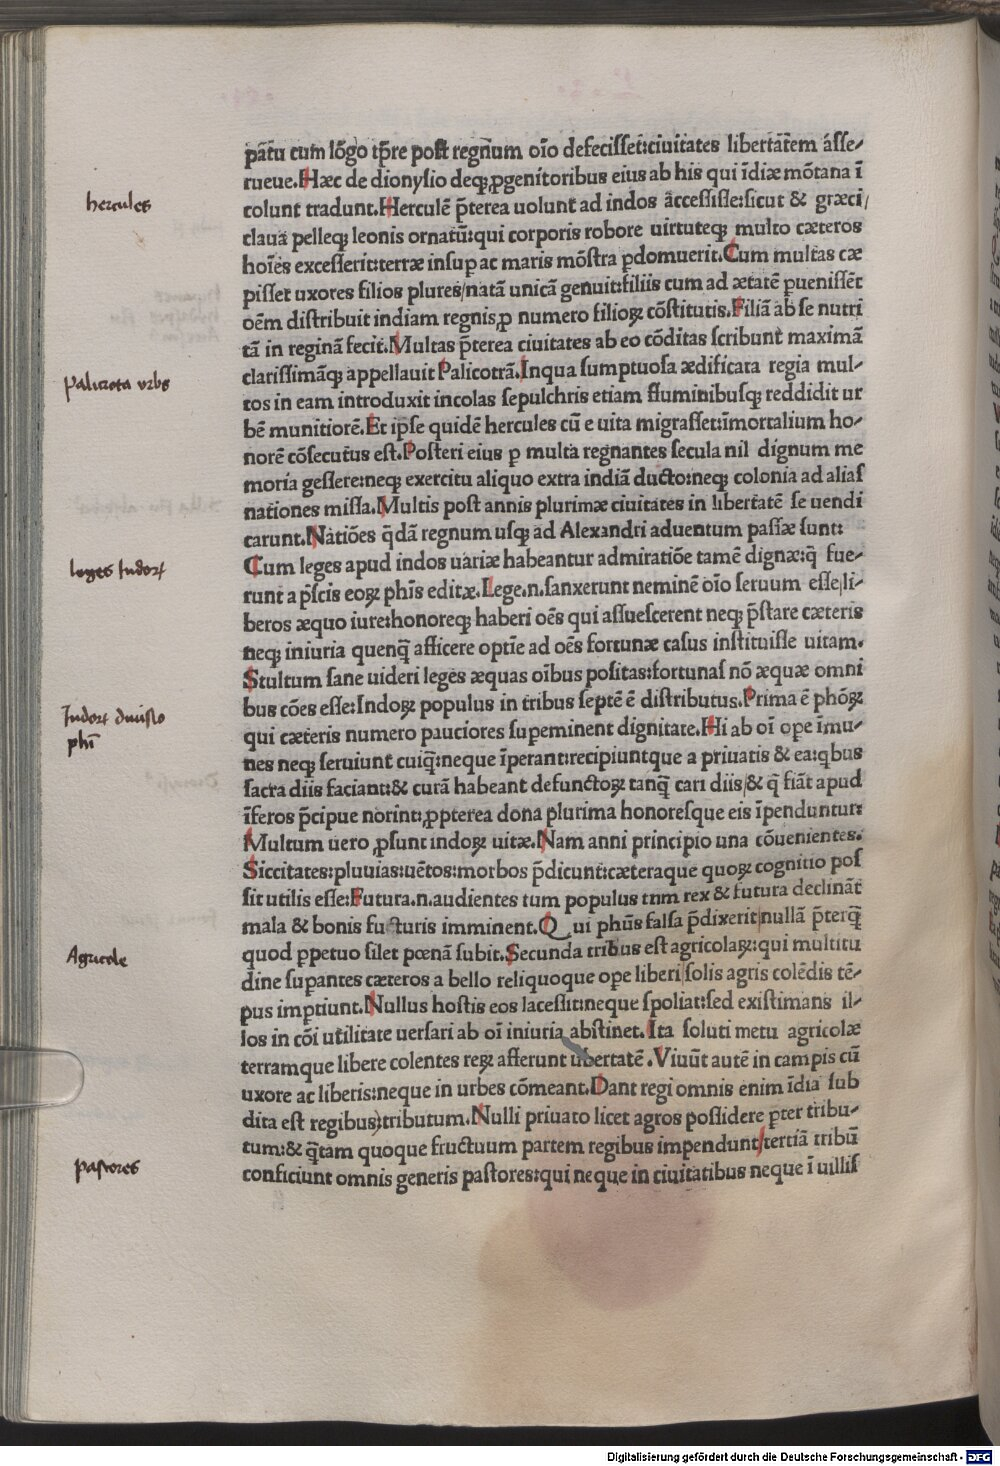 pãtu cum lõgo tp̃re post regnum oĩo defecisset:ciuitates libertãtem ásse-
rueue.Hæc de dionysio deq; ꝓgenitoribus eius ab his qui ĩdiæ mõtana ĩ
hercules
colunt tradunt.Herculẽ p̃terea uolunt ad indos accessisse:sicut & græci/
clauã pelleq; leonis ornatũ:qui corporis robore uirtuteq; multo cæteros
hoĩes excesserit:terræ insuꝑ ac maris mõstra ꝑdomuerit.Cum multas cæ
pisset uxores filios plures/natã unicã genuit:filiis cum ad ætatẽ ꝑuenissẽt
oẽm distribuit indiam regnis,ꝓ numero filioꝝ cõstitutis.Filiã ab se nutri
tã in reginã fecit.Multas p̃terea ciuitates ab eo cõditas scribunt maximã
Palicrota vrbs
clarissimãq; appellauit Palicotrã.Inqua sumptuosa ædificata regia mul-
tos in eam introduxit incolas sepulchris etiam fluminibusq; reddidit ur
bẽ munitiorẽ.Et ipse quidẽ hercules cũ e uita migrasset:ĩmortalium ho-
norẽ cõsecutus est.Posteri eius ꝑ multa regnantes secula nil dignum me
moria gessere:neq; exercitu aliquo extra indiã ducto:neq; colonia ad alias
nationes missa.Multis post annis plurimæ ciuitates in libertatẽ se uendi
carunt.Natiões q̃dã regnum usq; ad Alexandri aduentum passæ sunt:
leges Indorꝝ
Cum leges apud indos uariæ habeantur admiratiõe tamẽ dignæ:q̃ fue-
runt a p̃scis eoꝝ phĩs editæ.Lege.n.sanxerunt neminẽ oĩo seruum esse/li-
beros æquo iure:honoreq; haberi oẽs qui assuescerent neq; p̃stare cæteris
neq; iniuria quenq̃ afficere optĩe ad oẽs fortunæ casus instituisse uitam.
Stultum sane uideri leges æquas oĩbus positas:fortunas nõ æquæ omni
Indorꝝ diuisio
bus cões esse:Indoꝝ populus in tribus septẽ ẽ distributus.Prima ẽ phõꝝ
phĩ
qui cæteris numero pauciores suꝑeminent dignitate.Hi ab oĩ ope ĩmu-
nes neq; seruiunt cuiq̃:neque ĩperant:recipiuntque a priuatis & ea:qbus
sacra diis faciant:& curã habeant defunctoꝝ tanq̃ cari diis/& q̃ fiãt apud
ĩferos p̃cipue norint:ꝓpterea dona plurima honoresque eis ĩpenduntur:
Multum uero ꝓsunt indoꝝ uitæ.Nam anni principio una cõuenientes.
Siccitates:pluuias:uẽtos:morbos p̃dicunt:cæteraque quoꝝ cognitio pos
sit utilis esse:Futura.n.audientes tum populus tum rex & futura declinãt
mala & bonis fucturis imminent.Qui phũs falsa p̃dixerit/nullã p̃terq̃
Agricole
quod ꝑpetuo silet pœnã subit.Secunda tribus est agricolaꝝ:qui multitu
dine suꝑantes cæteros a bello reliquoque ope liberi/solis agris colẽdis tẽ-
pus imꝑtiunt.Nullus hostis eos lacessit:neque spoliat:sed existimans il-
los in cõĩ utilitate uersari ab oĩ iniuria abstinet.Ita soluti metu agricolæ
terramque libere colentes reꝝ afferunt ubertatẽ.Viuũt autẽ in campis cũ
uxore ac liberis:neque in urbes cõmeant.Dant regi omnis enim ĩdia sub
dita est regibus)tributum.Nulli priuato licet agros possidere p̃ter tribu-
tum:& q̃tam quoque fructuum partem regibus impendunt/tertiã tribũ
Pastores
conficiunt omnis generis pastores:qui neque in ciuitatibus neque ĩ uillis
Digitalisierung gefördert durch die Deutsche Forschungsgemeinschaft - DFG